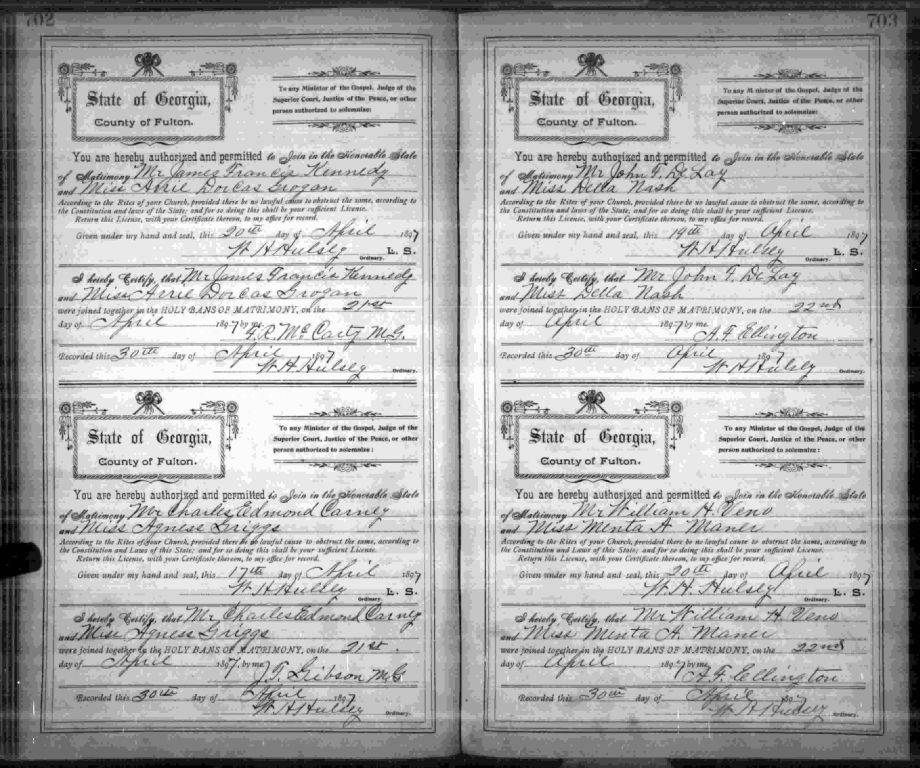 702
State of Georgia,
County of Fulton.
To any Minister of the Gospel, Judge of the
Superior Court, Justice of the Peace, or other
person authorized to solemnize:
You are hereby authorized and permitted to Join in the Honorable State
of Matrimony Mr James Francis Kennedy
and Miss Arrie Dorcas Grogan
According to the Rites of your Church, provided there be no lawful cause to obstruct the same, according to
the Constitution and laws of the State; and for so doing this shall be your sufficient License.
Return this License, with your Certificate thereon, to my office for record.
Given under my hand and seal, this 20th day of April 1897
W H Hulsey L. S.
Ordinary.
I hereby Certify, that Mr James Francis Kennedy
and Miss Arrie Dorcas Grogan
were joined together in the HOLY BANS OF MATRIMONY, on the 21st
day of April 1897 by me
F. R. McCarty M.G.
Recorded this 30th day of April 1897
W H Hulsey Ordinary.
State of Georgia,
County of Fulton.
To any Minister of the Gospel, Judge of the
Superior Court, Justice of the Peace, or other
person authorized to solemnize:
You are hereby authorized and permitted to Join in the Honorable State
of Matrimony Mr Charles Edmond Carney
and Miss Agness Griggs
According to the Rites of your Church, provided there be no lawful cause to obstruct the same, according to
the Constitution and Laws of this State; and for so doing this shall be your sufficient License.
Return this License, with your Certificate thereon, to my office for record.
Given under my hand and seal, this 17th day of April 1897
W H Hulsey L. S.
Ordinary.
I hereby Certify, that Mr Charles Edmond Carney
and Miss Agness Griggs
were joined together in the HOLY BANS OF MATRIMONY, on the 21st.
day of April 1897 by me
J. T. Gibson M G
Recorded this 30th day of April 1897
W H Hulsey Ordinary.
703
State of Georgia,
County of Fulton.
To any Minister of the Gospel, Judge of the
Superior Court, Justice of the Peace, or other
person authorized to solemnize:
You are hereby authorized and permitted to Join in the Honorable State
of Matrimony Mr John F. DeLay
and Miss Della Nash
According to the Rites of your Church, provided there be no lawful cause to obstruct the same, according to
the Constitution and laws of the State; and for so doing this shall be your sufficient License.
Return this License, with your Certificate thereon, to my office for record.
Given under my hand and seal, this 19th day of April 1897
W H Hulsey L. S.
Ordinary.
I hereby Certify, that Mr John F. DeLay
and Miss Della Nash
were joined together in the HOLY BANS OF MATRIMONY, on the 22nd
day of April 1897 by me
A. F. Ellington
Recorded this 30th day of April 1897
W H Hulsey Ordinary.
State of Georgia,
County of Fulton.
To any Minister of the Gospel, Judge of the
Superior Court, Justice of the Peace, or other
person authorized to solemnize:
You are hereby authorized and permitted to Join in the Honorable State
of Matrimony Mr William H. Veno
and Miss Menta A. Maner
According to the Rites of your Church, provided there be no lawful cause to obstruct the same, according to
the Constitution and Laws of this State; and for so doing this shall be your sufficient License.
Return this License, with your Certificate thereon, to my office for record.
Given under my hand and seal, this 20th day of April 1897
W. H. Hulsey L. S.
Ordinary.
I hereby Certify, that Mr William H. Veno
and Miss Menta A. Maner
were joined together in the HOLY BANS OF MATRIMONY, on the 22nd
day of April 1897 by me
A. F. Ellington
Recorded this 30th day of April 1897
W H Hulsey Ordinary.